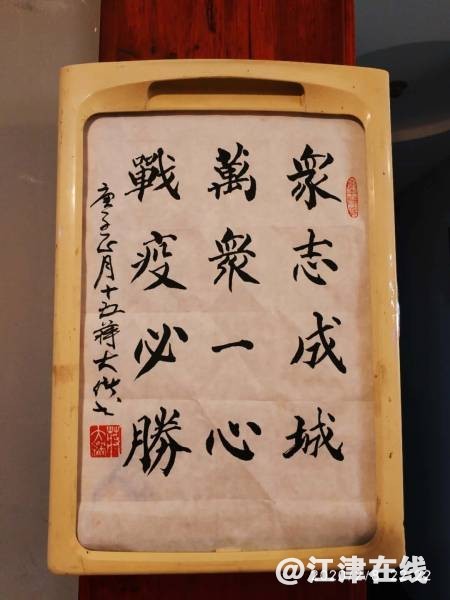 眾志成城
萬眾一心
戰疫必勝
庚子正月十五蔣大
@江津在线